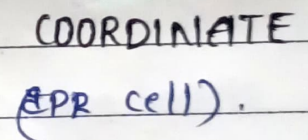 COORDINATE
(EPR cell).